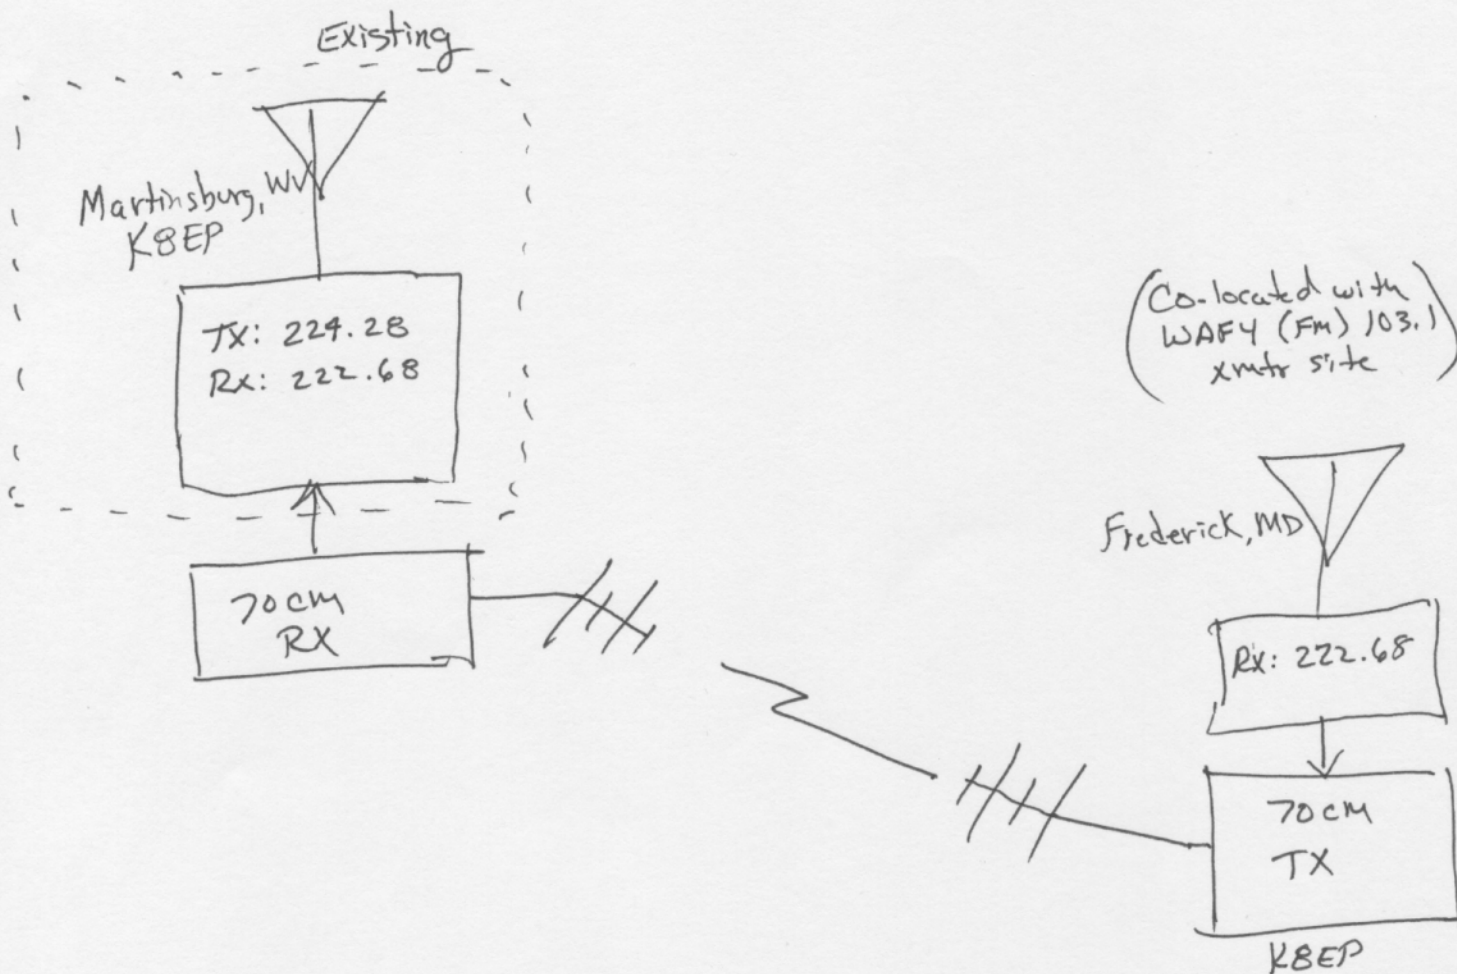 Existing
Martinsburg, WV
K8EP
TX: 224.28
RX: 222.68
70cm
RX
(Co-located with
WAFY (FM) 103.1
xmtr site)
Frederick, MD
Rx: 222.68
70cm
TX
K8EP